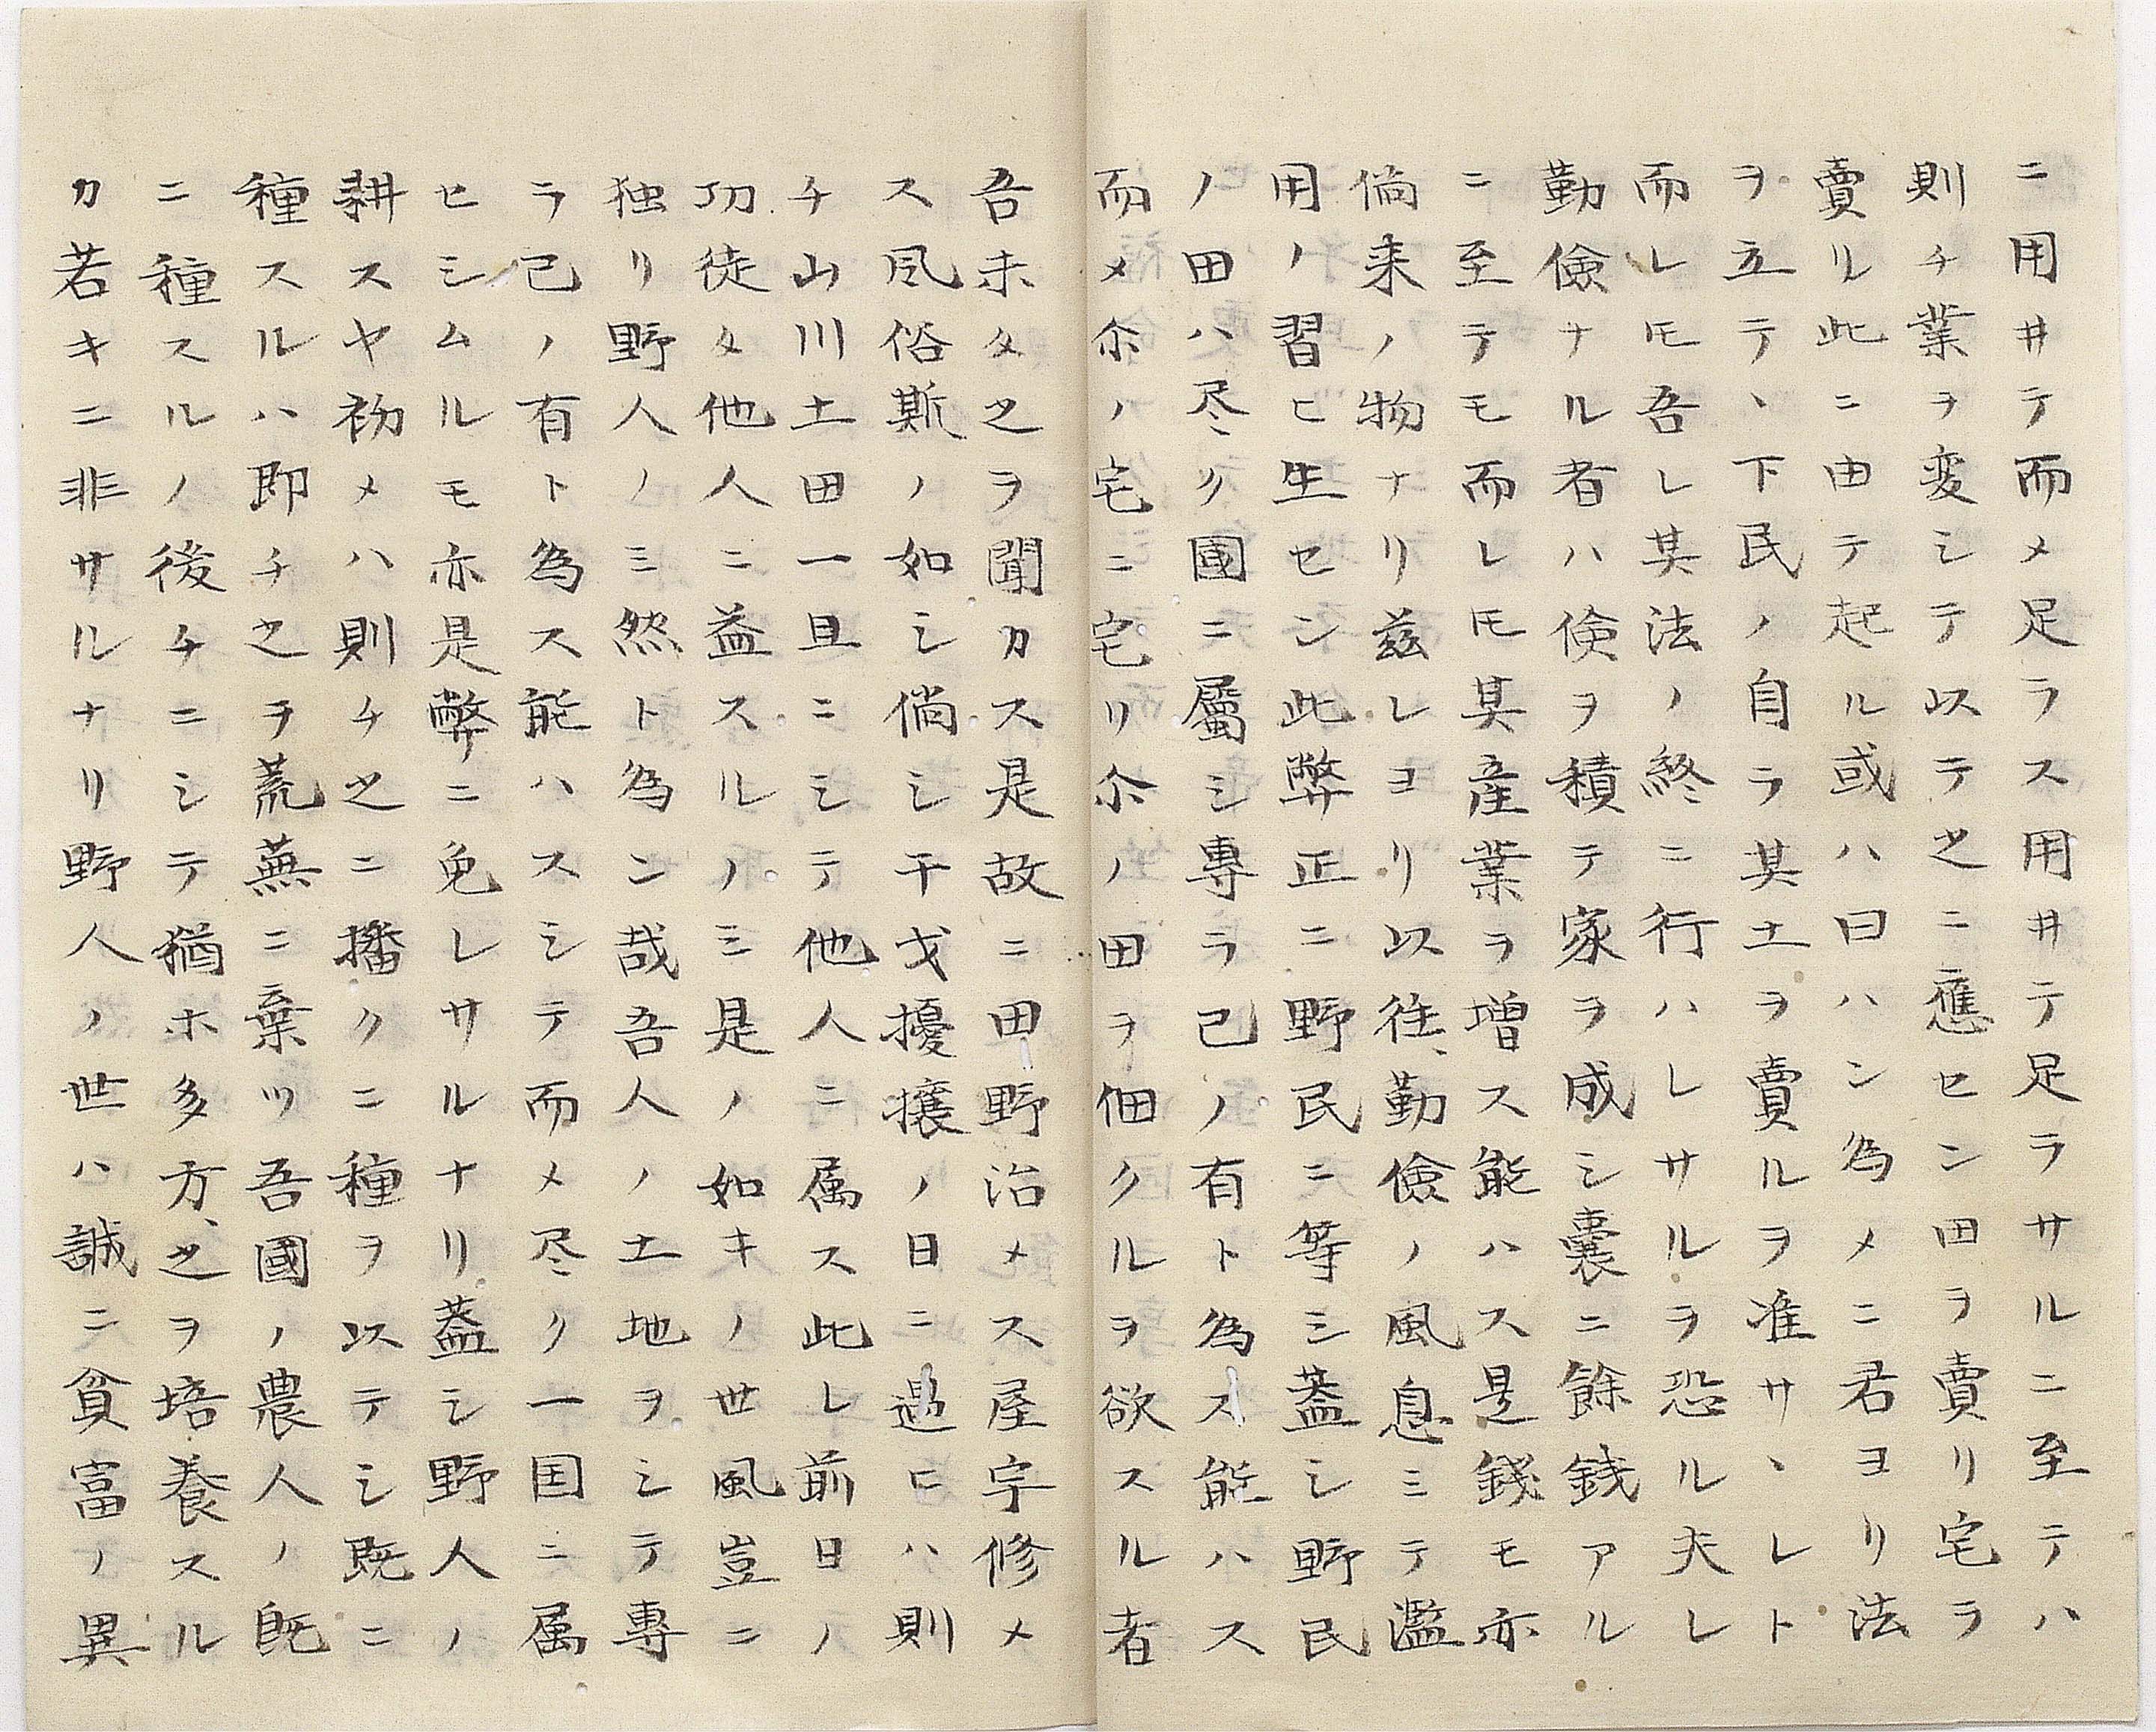 ニ用井テ而メ足ラス用井テ足ラサルニ至テハ
則チ業ヲ変シテ以テ之ニ應セン田ヲ賣リ宅ヲ
賣ル此ニ由テ起ル或ハ曰ハン為メニ君ヨリ法
ヲ立テヽ下民ノ自ラ其土ヲ賣ルヲ准サヽレト
而レ𪜈吾レ其法ノ終ニ行ハレサルヲ恐ル夫レ
勤儉ナル者ハ倹ヲ積テ家ヲ成シ嚢ニ餘銭アル
ニ至テモ而レ𪜈其産業ヲ増ス能ハス是銭モ亦
倘来ノ物ナリ茲レヨリ以往、勤儉ノ風息ミテ濫
用ノ習ヒ生セン此弊正ニ野民ニ等シ蓋シ野民
ノ田ハ尽ク國ニ屬シ專ラ己ノ有ト為ス能ハス
而メ尓ノ宅ニ宅リ尓ノ田ヲ佃クルヲ欲スル者
吾未タ之ヲ聞カス是故ニ田野治メス屋宇修メ
ス風俗斯ノ如シ倘シ干戈擾攘ノ日ニ遇ヒハ則
チ山川土田一旦ニシテ他人ニ属ス此レ前日ノ
功徒タ他人ニ益スルノミ是ノ如キノ世風豈ニ
独リ野人ノミ然ト為ン哉吾人ノ土地ヲシテ專
ラ己ノ有ト為ス能ハスシテ而メ尽ク一国ニ属
セシムルモ亦是弊ニ免レサルナリ蓋シ野人ノ
耕スヤ初メハ則チ之ニ播クニ種ヲ以テシ既ニ
種スルハ即チ之ヲ荒蕪ニ棄ツ吾國ノ農人ノ既
ニ種スルノ後チニシテ猶ホ多方、之ヲ培養スル
カ若キニ非サルナリ野人ノ世ハ誠ニ貧富ノ異